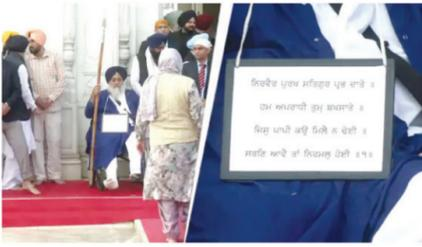 ਨਿਰਵੈਰ ਪੁਰਖ ਸਤਿਗੁਰ ਪ੍ਰਭ ਦਾਤੇ ॥
ਹਮ ਅਪਰਾਧੀ ਤੁਮ੍ਹ ਬਖਸਾਤੇ ॥
ਜਿਸੁ ਪਾਪੀ ਕਉ ਮਿਲੈ ਨ ਢੋਈ ॥
ਸਰਣਿ ਆਵੈ ਤਾਂ ਨਿਰਮਲੁ ਹੋਈ ॥੧॥